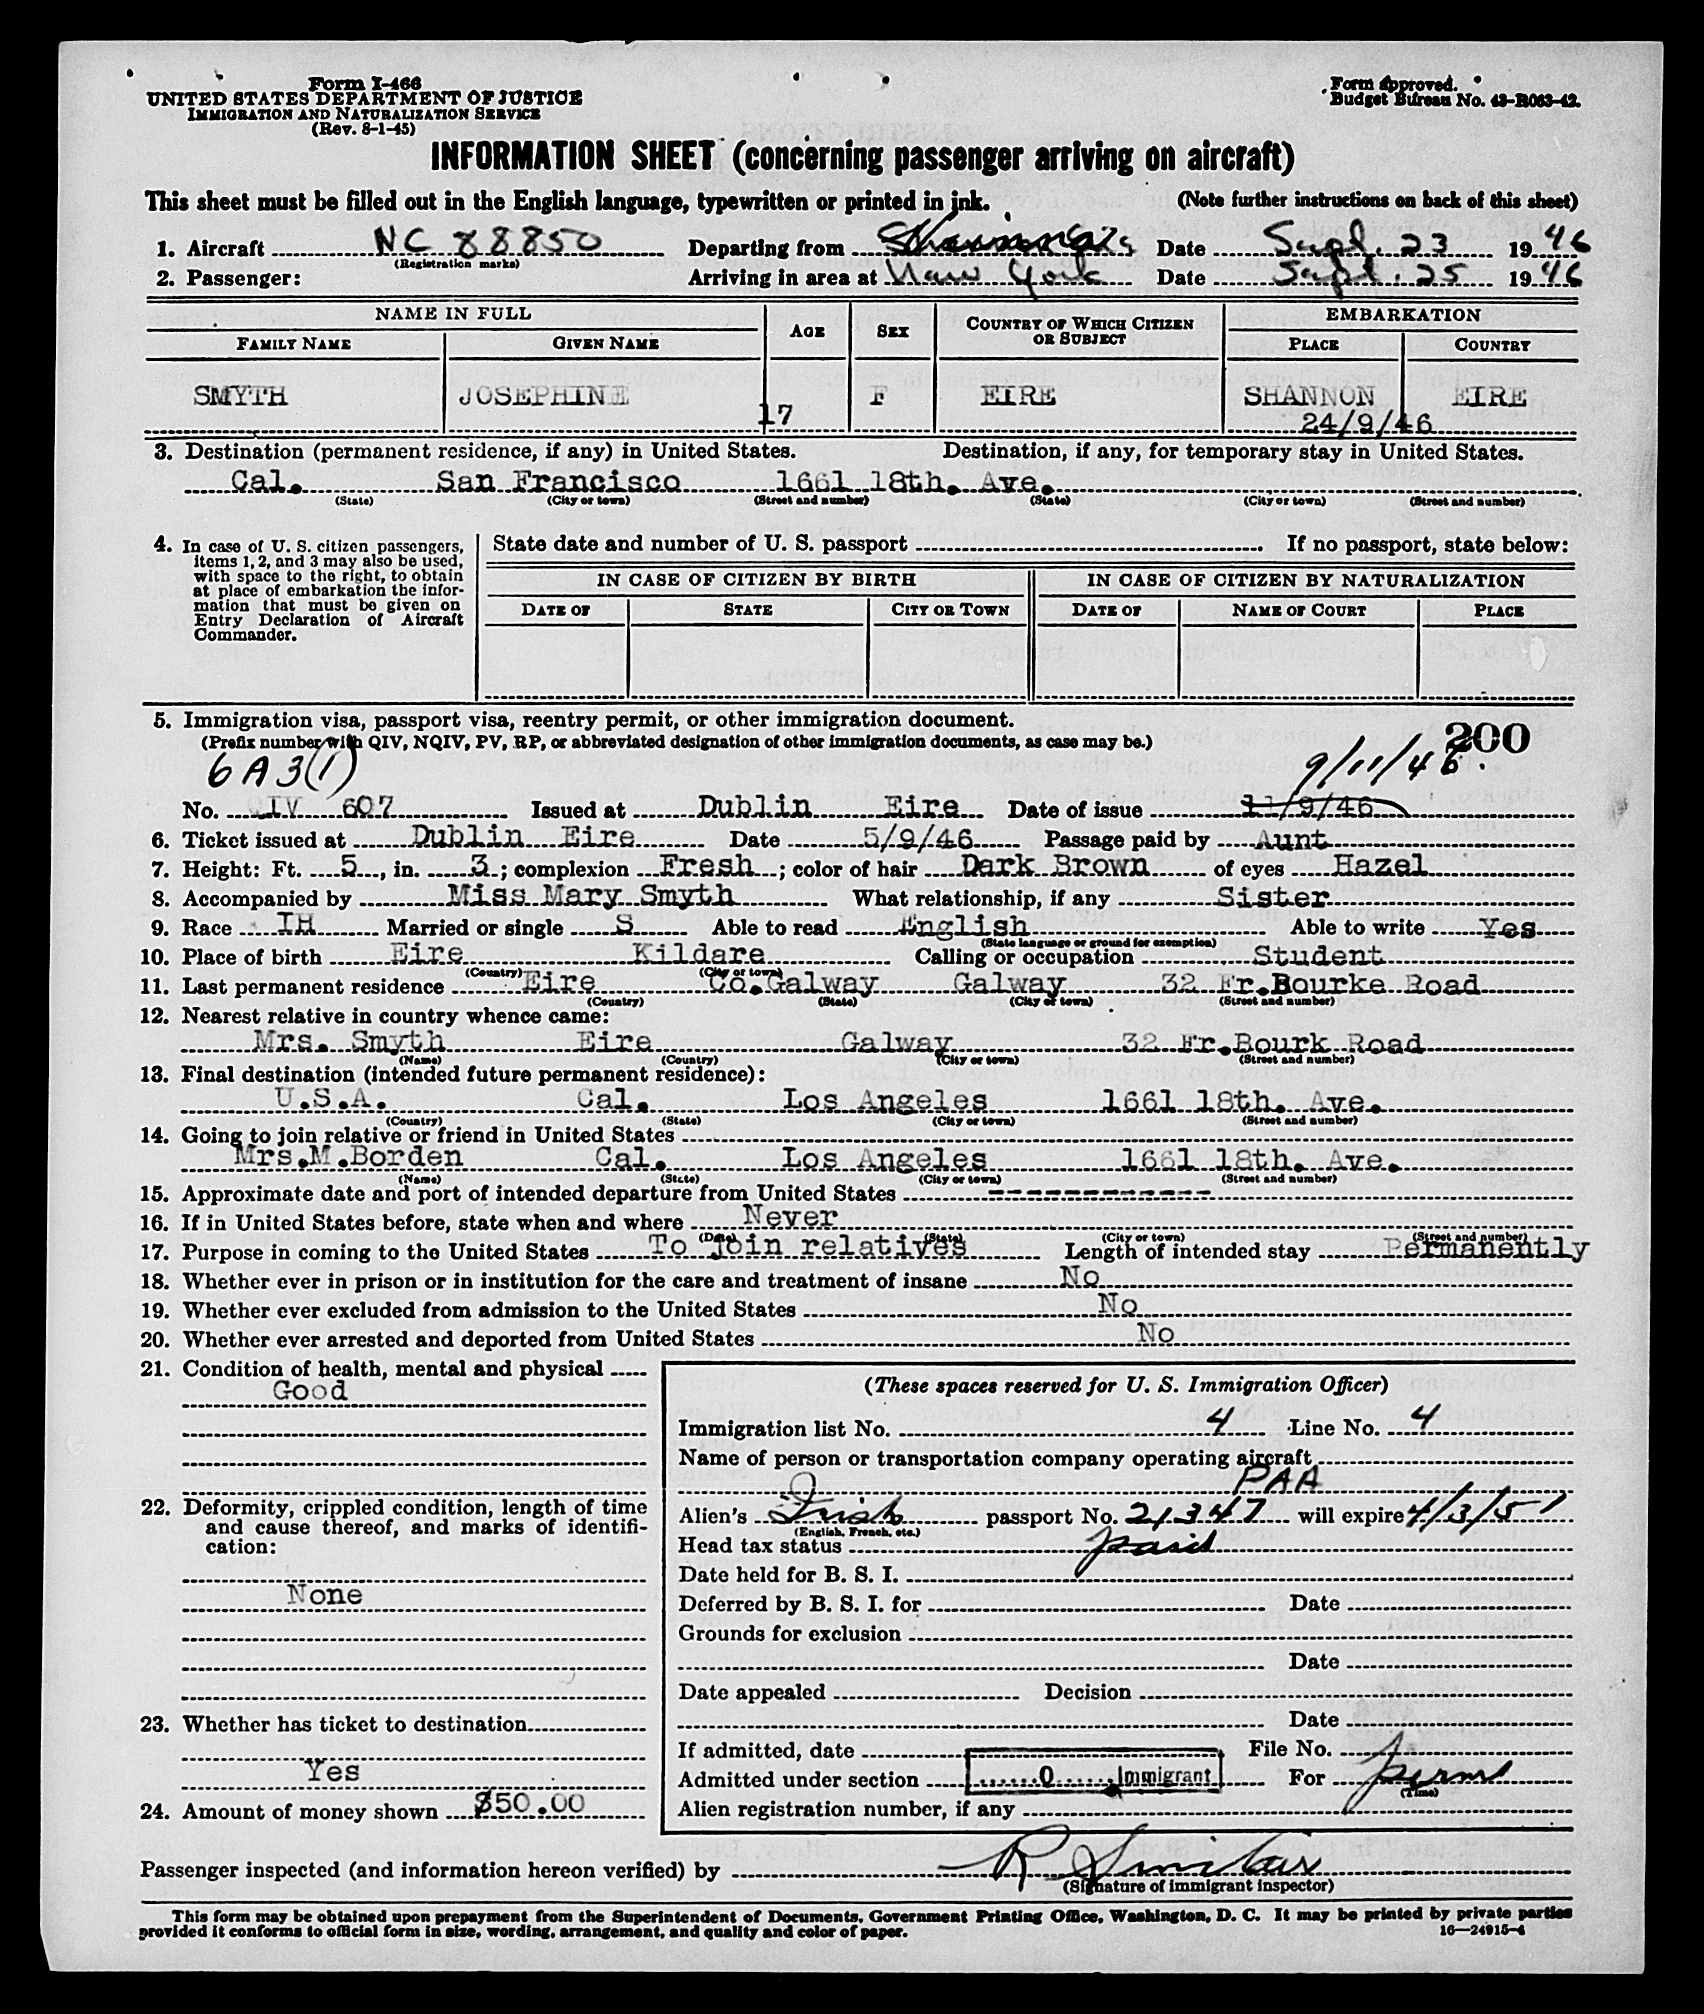 Form I-466
UNITED STATES DEPARTMENT OF JUSTICE
IMMIGRATION AND NATURALIZATION SERVICE
(Rev. 8-1-45)
Form approved.
Budget Bureau No. 43-R083-42.
INFORMATION SHEET (concerning passenger arriving on aircraft)
This sheet must be filled out in the English language, typewritten or printed in ink. (Note further instructions on back of this sheet)
1. Aircraft NC 88850 Departing from Date Sept. 23 1946
(Registration marks)
2. Passenger: Arriving in area at New York Date Sept. 25 1946
NAME IN FULL AGE SEX COUNTRY OF WHICH CITIZEN OR SUBJECT EMBARKATION
FAMILY NAME GIVEN NAME PLACE COUNTRY
SMYTH JOSEPHINE 17 F EIRE SHANNON EIRE
24/9/46
3. Destination (permanent residence, if any) in United States. Destination, if any, for temporary stay in United States.
Cal. San Francisco 1661 18th. Ave.
(State) (City or town) (Street and number) (State) (City or town) (Street and number)
4. In case of U. S. citizen passengers, items 1, 2, and 3 may also be used, with space to the right, to obtain at place of embarkation the information that must be given on Entry Declaration of Aircraft Commander.
State date and number of U. S. passport If no passport, state below:
IN CASE OF CITIZEN BY BIRTH IN CASE OF CITIZEN BY NATURALIZATION
DATE OF STATE CITY OR TOWN DATE OF NAME OF COURT PLACE
5. Immigration visa, passport visa, reentry permit, or other immigration document.
(Prefix number with QIV, NQIV, PV, RP, or abbreviated designation of other immigration documents, as case may be.)
200
6A3(1) 9/11/46.
No. QIV 607 Issued at Dublin Eire Date of issue 11/9/46
6. Ticket issued at Dublin Eire Date 5/9/46 Passage paid by Aunt
7. Height: Ft. 5, in. 3; complexion Fresh; color of hair Dark Brown of eyes Hazel
8. Accompanied by Miss Mary Smyth What relationship, if any Sister
9. Race IH Married or single S Able to read English Able to write Yes
(State language or ground for exemption)
10. Place of birth Eire Kildare Calling or occupation Student
(Country) (City or town)
11. Last permanent residence Eire Co.Galway Galway 32 Fr.Bourke Road
(Country) (State) (City or town) (Street and number)
12. Nearest relative in country whence came:
Mrs. Smyth Eire Galway 32 Fr.Bourk Road
(Name) (Country) (City or town) (Street and number)
13. Final destination (intended future permanent residence):
U.S.A. Cal. Los Angeles 1661 18th. Ave.
(Country) (State) (City or town) (Street and number)
14. Going to join relative or friend in United States
Mrs.M.Borden Cal. Los Angeles 1661 18th. Ave.
(Name) (State) (City or town) (Street and number)
15. Approximate date and port of intended departure from United States ------------
16. If in United States before, state when and where Never
(Date) (State) (City or town) (Street and number)
17. Purpose in coming to the United States To join relatives Length of intended stay Permanently
18. Whether ever in prison or in institution for the care and treatment of insane No
19. Whether ever excluded from admission to the United States No
20. Whether ever arrested and deported from United States No
21. Condition of health, mental and physical
Good
22. Deformity, crippled condition, length of time and cause thereof, and marks of identification:
None
23. Whether has ticket to destination
Yes
24. Amount of money shown $50.00
(These spaces reserved for U. S. Immigration Officer)
Immigration list No. 4 Line No. 4
Name of person or transportation company operating aircraft
PAA
Alien's Irish passport No. 21347 will expire 4/3/51
(English, French, etc.)
Head tax status paid
Date held for B. S. I.
Deferred by B. S. I. for Date
Grounds for exclusion
Date
Date appealed Decision
Date
If admitted, date File No.
Admitted under section ......0...... Immigrant For perm
(Time)
Alien registration number, if any
Passenger inspected (and information hereon verified) by R Sinclair
(Signature of immigrant inspector)
This form may be obtained upon prepayment from the Superintendent of Documents, Government Printing Office, Washington, D. C. It may be printed by private parties
provided it conforms to official form in size, wording, arrangement, and quality and color of paper. 16—24915-4